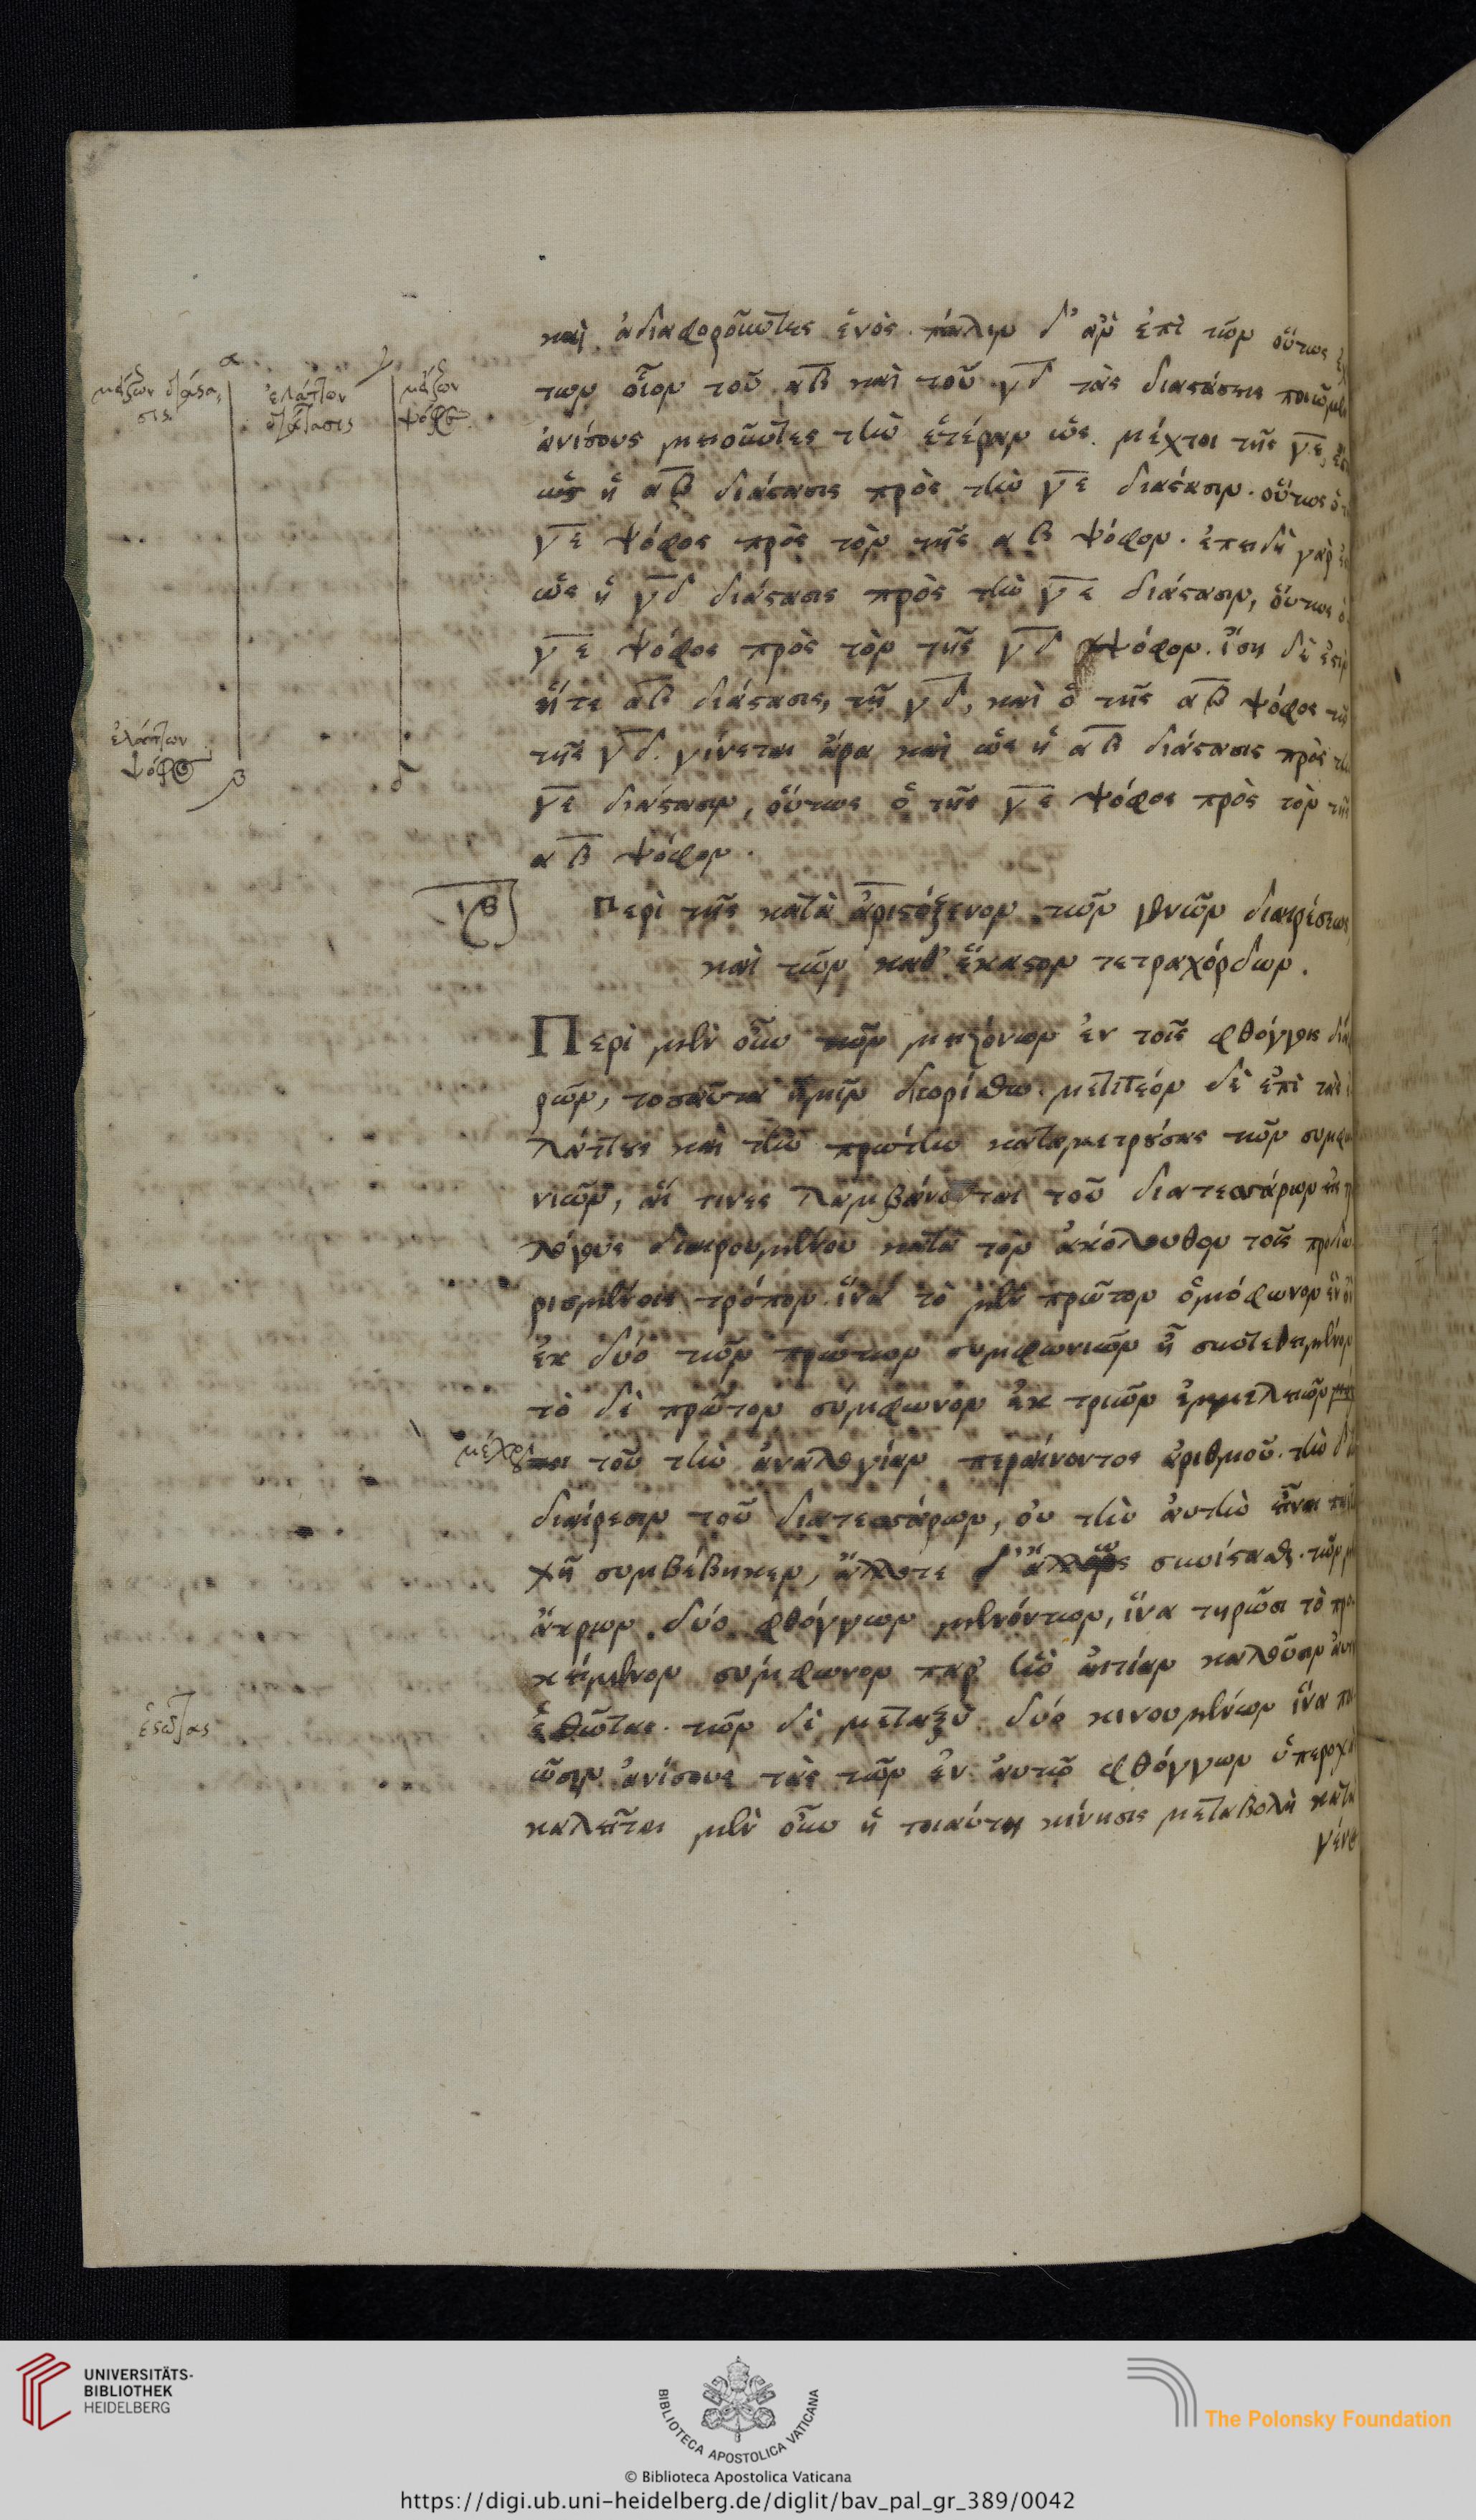 καὶ ἀδιαφοροῦντες ἑνὸς. πάλιν δ' ἂν ἐπὶ τῶν οὕτως
των οἷον τοῦ αβ καὶ τοῦ γδ τὰς διαστάσεις ποιῶμεν
ἀνίσους μειοῦντες τὴν ἑτέραν ὡς μέχρι τῆς γε,
ὡς ἡ αβ διάστασις πρὸς τὴν γε διάστασιν. οὕτως ὁ
γε ψόφος πρὸς τὸν τῆς αβ ψόφον. ἐπειδὴ γὰρ
ὡς ἡ γδ διάστασις πρὸς τὴν γε διάστασιν, οὕτως ὁ
γε ψόφος πρὸς τὸν τῆς γδ ψόφον. ἴση δὲ ἐστὶν
ἥτε αβ διάστασις, τῇ γδ, καὶ ὁ τῆς αβ ψόφος τῷ
τῆς γδ. γίνεται ἄρα καὶ ὡς ἡ αβ διάστασις πρὸς τὴν
γε διάστασιν, οὕτως ὁ τῆς γε ψόφος πρὸς τὸν τῆς
αβ ψόφον.
ιβ Περὶ τῆς κατὰ ἀριστόξενον τῶν γενῶν διαιρέσεως
καὶ τῶν καθ' ἕκαστον τετραχόρδων.
Περὶ μὲν οὖν τῶν μειζόνων ἐν τοῖς φθόγγοις
ρῶν, τοσαῦτα ἡμῖν διωρίσθω. μετιτέον δὲ ἐπὶ τὰς
λάττους καὶ τὴν πρώτην καταμετρούσας τῶν συμφω
νιῶν, αἵ τινες λαμβάνονται τοῦ διατεσσάρων εἰς
λόγους διαιρουμένου κατὰ τὸν ἀκόλουθον τοῖς προδιω
ρισμένοις τρόπον. ἵνα τὸ μὲν πρῶτον ὁμόφωνον ἓν ὂν
ἐκ δύο τῶν πρώτων συμφωνιῶν ᾖ συντεθειμένον
τὸ δὲ πρῶτον σύμφωνον ἐκ τριῶν ἐμμελειῶν
μέχρι τοῦ τὴν ἀναλογίαν περαίνοντος ἀριθμοῦ. τὴν δὲ
διαίρεσιν τοῦ διατεσσάρων, οὐ τὴν αὐτὴν εἶναι
χῇ συμβέβηκεν, ἄλλοτε δ' ἄλλως συνίστασθαι. τῶν
ἄκρων δύο φθόγγων μενόντων, ἵνα τηρῶσι τὸ προ
κείμενον σύμφωνον παρ' ἣν αἰτίαν καλοῦσιν αὐτοὺς
ἑστῶτας. τῶν δὲ μεταξὺ δύο κινουμένων ἵνα ποι
ῶσιν ἀνίσους τὰς τῶν ἐν αὐτῷ φθόγγων ὑπεροχὰς
καλεῖται μὲν οὖν ἡ τοιαύτη κίνησις μεταβολὴ κατὰ
γένος
α γ
μείζων διάστα
σις
ἐλάττων
διάστασις
μείζων
ψόφος
ἐλάττων
ψόφος
β δ
ἑστῶτας
UNIVERSITÄTS-
BIBLIOTHEK
HEIDELBERG
BIBLIOTECA APOSTOLICA VATICANA
The Polonsky Foundation
© Biblioteca Apostolica Vaticana
https://digi.ub.uni-heidelberg.de/diglit/bav_pal_gr_389/0042